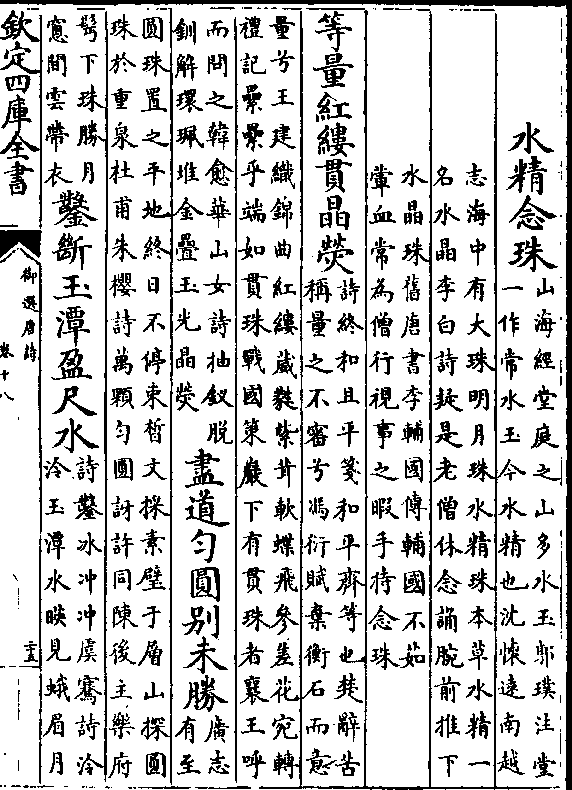 水精念珠
山海經堂庭之山多水玉郭璞注堂
一作常水玉今水精也沈懷遠南越
志海中有大珠明月珠水精珠本草水精一
名水晶李白詩錠是老僧休念誦腕前推下
水晶珠舊唐書李輔國傳輔國不茹
葷血常為僧行視事之暇手持念珠
等量紅縷貫晶熒
詩終和且平箋和平齊等也楚辭苦
稱量之不審兮馮衍賦棄衡石而意
量兮王建織錦曲紅縷葳蕤紫茸軟蝶飛參差花宛轉
禮記纍纍乎端如貫珠戰國策巖下有貫珠者襄王呼
而問之韓愈華山女詩抽釵脫
釧解環珮堆金疊玉光晶熒
盡道勻圓別未勝
廣志
有至
圓珠置之平地終日不停束晳文採素璧于層山探圓
珠於重泉杜甫朱櫻詩萬顆勻圓訝許同陳後主樂府
髩下珠勝月
窻間雲帶衣
鑿斷玉潭盈尺水
詩鑿冰冲冲虞騫詩泠
泠玉潭水映見蛾眉月
欽定四庫全書
御選唐詩
卷十八